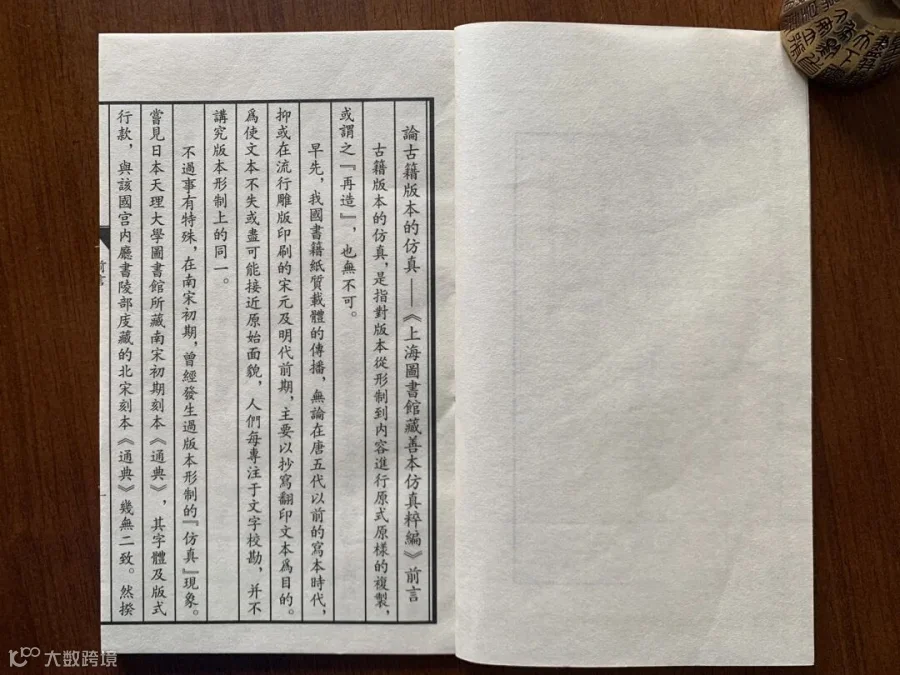 論古籍版本的仿真——《上海圖書館藏善本仿真粹編》前言
古籍版本的仿真，是指對版本從形制到内容進行原式原樣的複製，
或謂之『再造』，也無不可。
早先，我國書籍紙質載體的傳播，無論在唐五代以前的寫本時代，
抑或在流行雕版印刷的宋元及明代前期，主要以抄寫翻印文本爲目的。
爲使文本不失或盡可能接近原始面貌，人們每專注于文字校勘，并不
講究版本形制上的同一。
不過事有特殊，在南宋初期，曾經發生過版本形制的『仿真』現象。
嘗見日本天理大學圖書館所藏南宋初期刻本《通典》，其字體及版式
行款，與該國宫内廳書陵部庋藏的北宋刻本《通典》幾無二致。然揆
前言
一
大数跨境